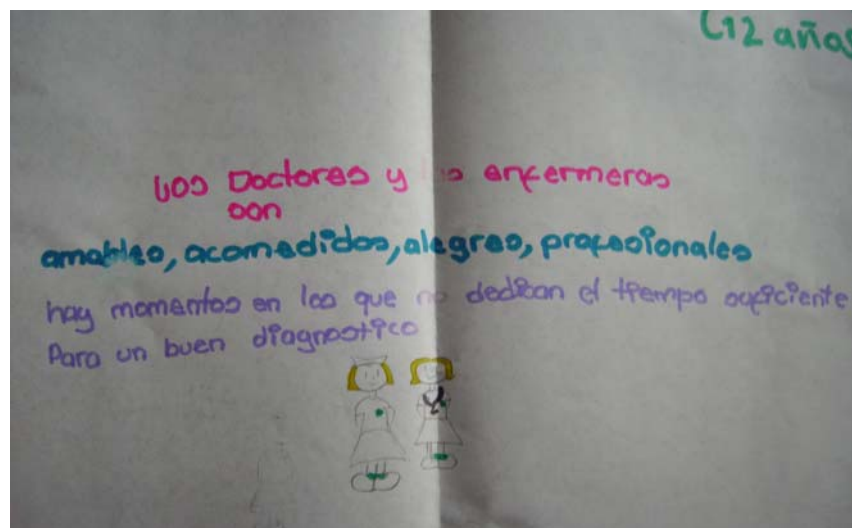 (12 años
Los Doctores y las enfermeras
son
amables, acomedidos, alegres, profesionales
hay momentos en los que no dedican el tiempo suficiente
Para un buen diagnostico